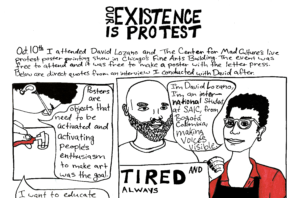 OUR EXISTENCE
IS PROTEST
Oct 10th I attended David Lozano and The Center for Mad Culture's live
protest poster printing show in Chicago's Fine Arts Building. The event was
free to attend and it was free to make a poster with the letter press.
Below are direct quotes from an interview I conducted with David after.
Posters
are
objects that
need to be
activated and
activating
people's
enthusiasm
to make art
was the goal.
I want to educate
I'm David Lozano,
I'm, an inter-
national student
at SAIC, from
Bogotá
Colombia,
making
voices
visible
TIRED AND
ALWAYS